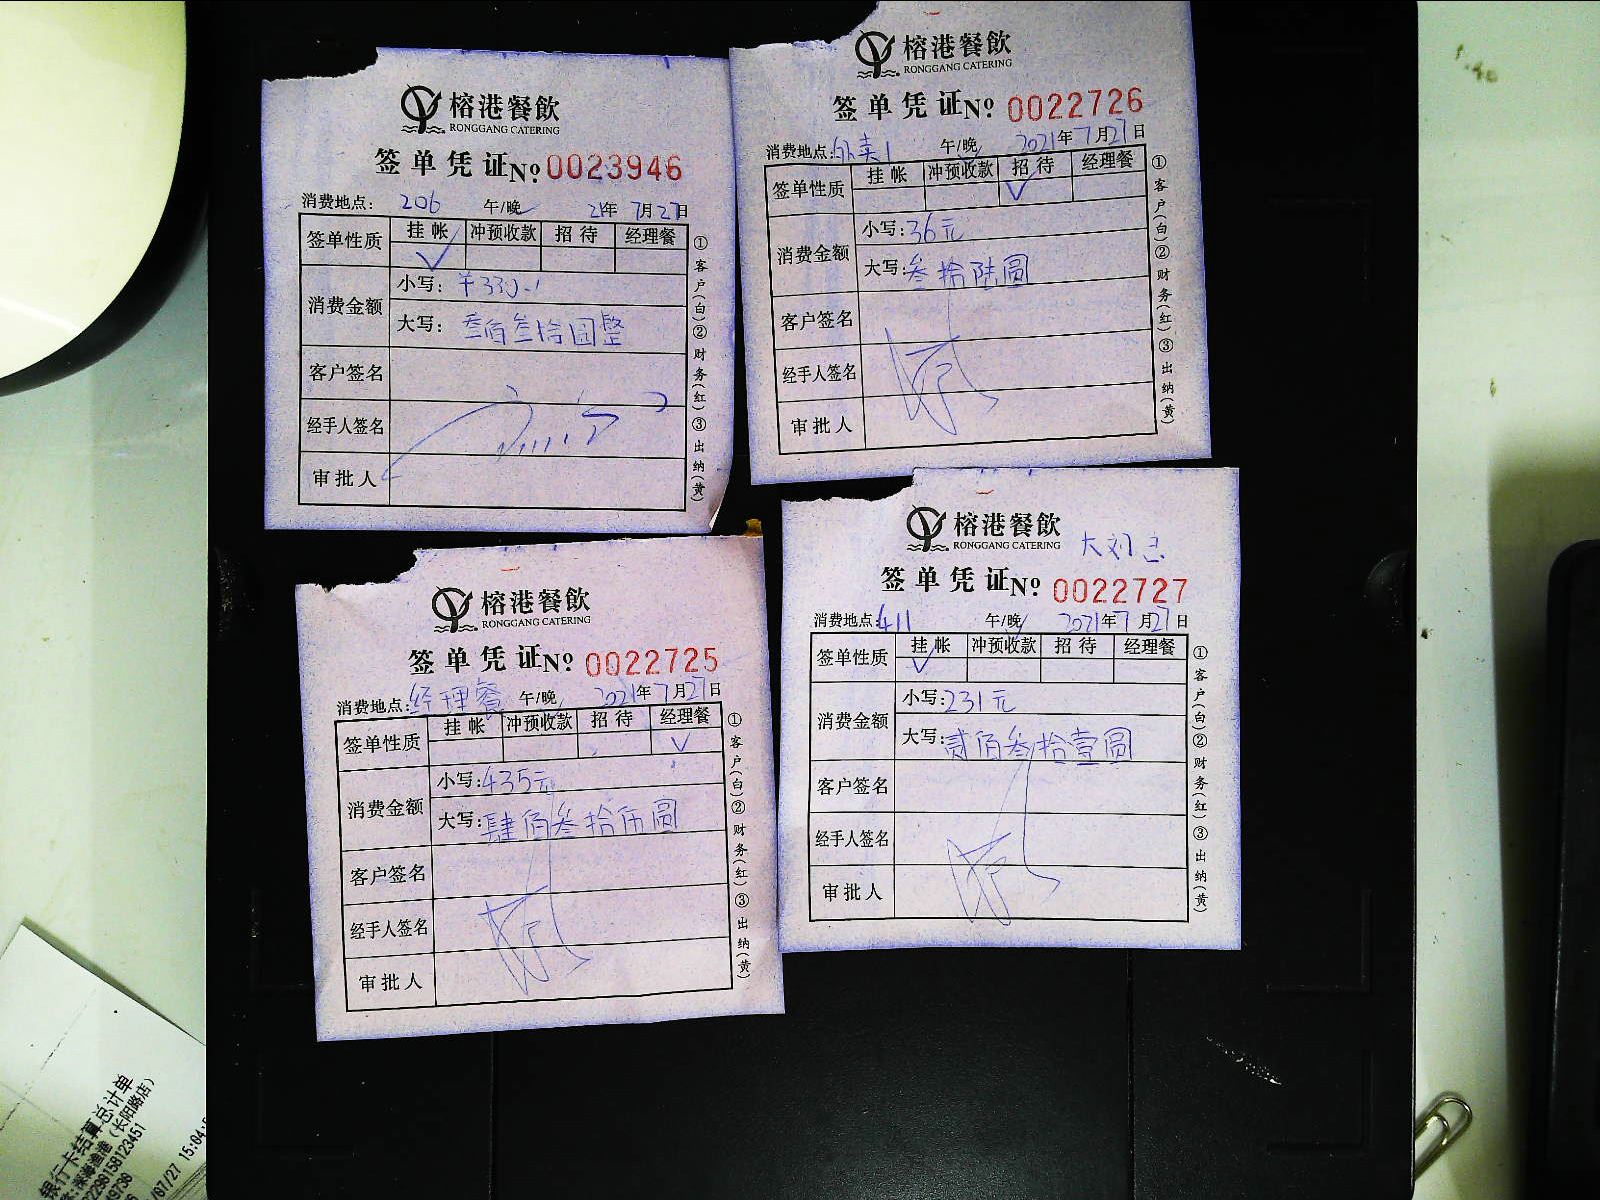 榕港餐飲
RONGGANG CATERING
签单凭证 № 0023946
消费地点: 206 午/晚 21年7月27日
签单性质 挂帐 冲预收款 招待 经理餐
消费金额 小写: ￥330-1
大写: 叁佰叁拾圆整
客户签名
经手人签名
审批人
①客户(白)②财务(红)③出纳(黄)
榕港餐飲
RONGGANG CATERING
签单凭证 № 0022726
消费地点: 外卖1 午/晚 2021年7月27日
签单性质 挂帐 冲预收款 招待 经理餐
消费金额 小写: 36元
大写: 叁拾陆圆
客户签名
经手人签名
审批人
①客户(白)②财务(红)③出纳(黄)
榕港餐飲
RONGGANG CATERING
签单凭证 № 0022725
消费地点: 经理餐 午/晚 2021年7月27日
签单性质 挂帐 冲预收款 招待 经理餐
消费金额 小写: 435元
大写: 肆佰叁拾伍圆
客户签名
经手人签名
审批人
①客户(白)②财务(红)③出纳(黄)
榕港餐飲
RONGGANG CATERING
大刘总
签单凭证 № 0022727
消费地点: 411 午/晚 2021年7月27日
签单性质 挂帐 冲预收款 招待 经理餐
消费金额 小写: 231元
大写: 贰佰叁拾壹圆
客户签名
经手人签名
审批人
①客户(白)②财务(红)③出纳(黄)
银行卡结算总计单
深海渔港(长阳路店)
2298158123451
9736
/07/27 15:04: